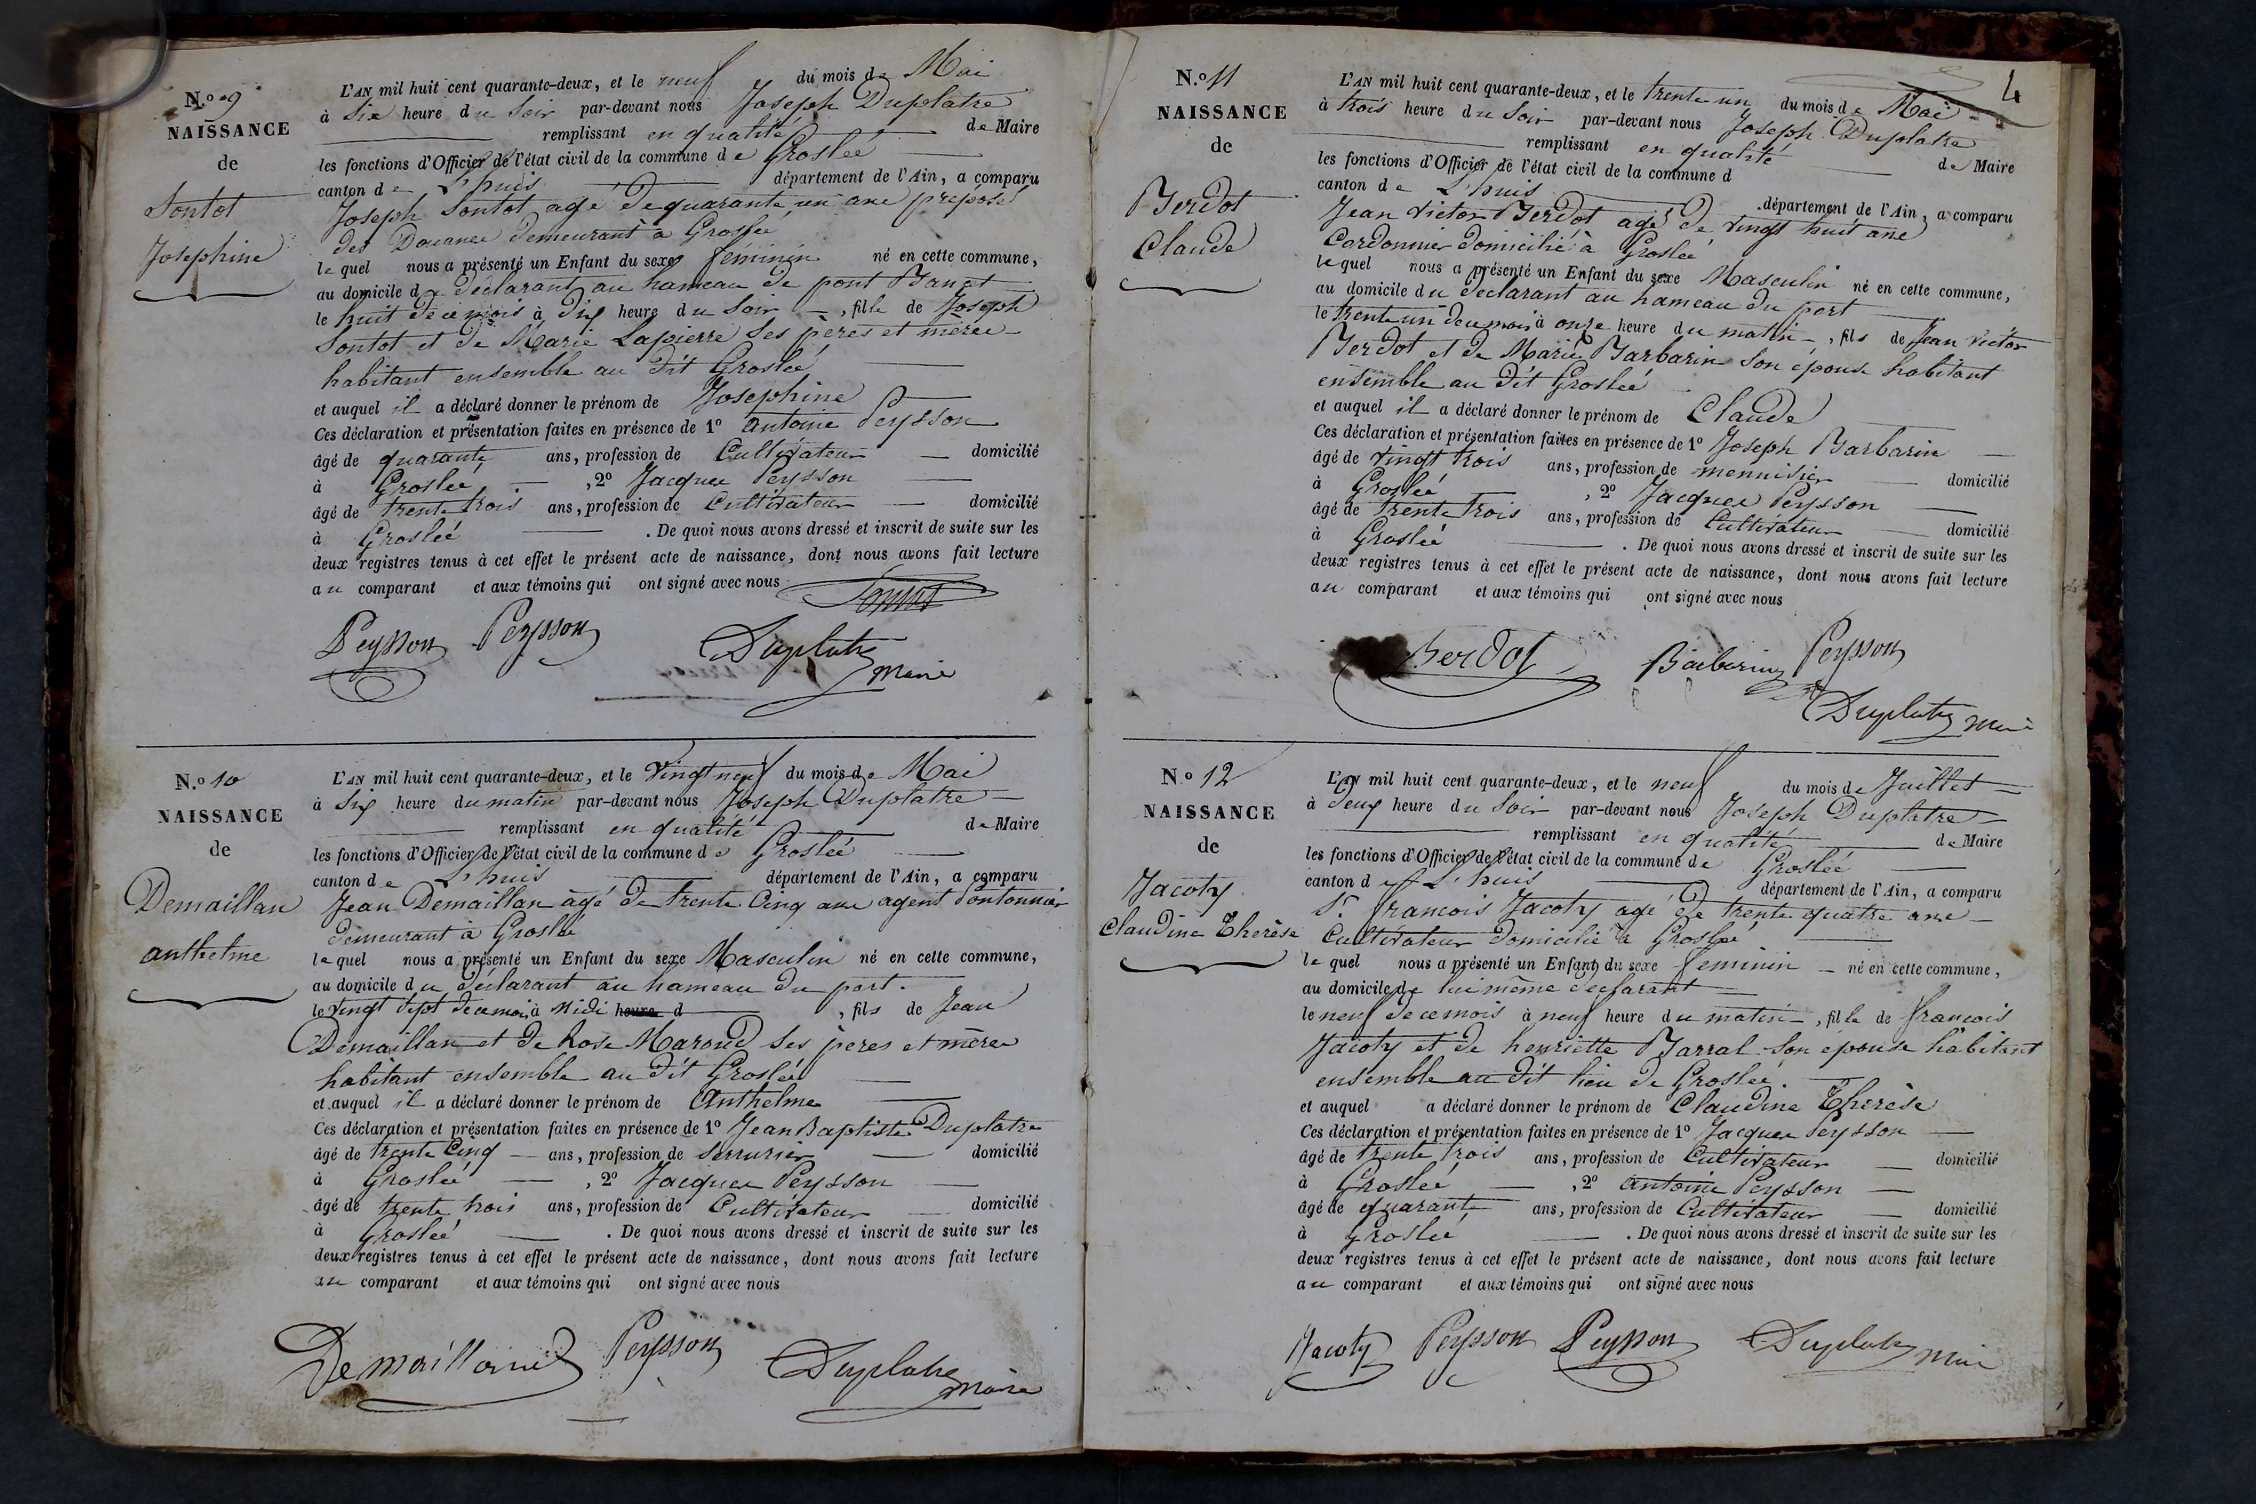 N.o 9
NAISSANCE
de
Sontot
Josephine
L'AN mil huit cent quarante-deux, et le neuf du mois de Mai
à Six heure du Soir par-devant nous Joseph Duplatre
remplissant en qualité de Maire
les fonctions d'Officier de l'état civil de la commune de Groslée
canton de L'huis département de l'Ain, a comparu
Joseph Sontot agé de quarante un ans préposé
des Douanes demeurant à Groslée
lequel nous a présenté un Enfant du sexe féminin né en cette commune,
au domicile du déclarant au hameau de pont
le huit de ce mois à dix heure du Soir, fille de Joseph
Sontot et de Marie Lapierre Ses pères et mères
habitant ensemble au dit Groslée
et auquel il a déclaré donner le prénom de Josephine
Ces déclaration et présentation faites en présence de 1o antoine Peysson
âgé de quarante ans, profession de Cultivateur domicilié
à Groslée, 2o Jacques Peysson
âgé de trente trois ans, profession de Cultivateur domicilié
à Groslée. De quoi nous avons dressé et inscrit de suite sur les
deux registres tenus à cet effet le présent acte de naissance, dont nous avons fait lecture
au comparant et aux témoins qui ont signé avec nous
Peysson Peysson Duplatre
Maire
N.o 10
NAISSANCE
de
Demaillan
anthelme
L'AN mil huit cent quarante-deux, et le Vingt neuf du mois de Mai
à Six heure du matin par-devant nous Joseph Duplatre
remplissant en qualité de Maire
les fonctions d'Officier de l'état civil de la commune de Groslée
canton de L'huis département de l'Ain, a comparu
Jean Demaillan agé de trente Cinq ans agent Pontonnier
demeurant à Groslée
lequel nous a présenté un Enfant du sexe Masculin né en cette commune,
au domicile du déclarant au hameau du port.
le Vingt Sept de ce mois à Midi heure d, fils de Jean
Demaillan et de Rose Maroud Ses peres et mères
habitant ensemble au dit Groslée
et auquel il a déclaré donner le prénom de Anthelme
Ces déclaration et présentation faites en présence de 1o Jean Baptiste Duplatre
âgé de trente Cinq ans, profession de Serrurier domicilié
à Groslée, 2o Jacques Peysson
âgé de trente trois ans, profession de Cultivateur domicilié
à Groslée. De quoi nous avons dressé et inscrit de suite sur les
deux registres tenus à cet effet le présent acte de naissance, dont nous avons fait lecture
au comparant et aux témoins qui ont signé avec nous
Peysson Duplatre
Maire
4
N.o 11
NAISSANCE
de
Berdot
Claude
L'AN mil huit cent quarante-deux, et le trente un du mois de Mai
à trois heure du Soir par-devant nous Joseph Duplatre
remplissant en qualité de Maire
les fonctions d'Officier de l'état civil de la commune d
canton de L'huis département de l'Ain, a comparu
Jean Victor Berdot agé de vingt huit ans
Cordonnier domicilié à Groslée
lequel nous a présenté un Enfant du sexe Masculin né en cette commune,
au domicile du declarant au hameau du port
le trente un du mois à onze heure du matin, fils de Jean Victor
Berdot et de Marie Barbarin Son épouse habitant
ensemble au dit Groslée
et auquel il a déclaré donner le prénom de Claude
Ces déclaration et présentation faites en présence de 1o Joseph Barbarin
âgé de vingt trois ans, profession de mennisier domicilié
à Groslée, 2o Jacques Peysson
âgé de trente trois ans, profession de Cultivateur domicilié
à Groslée. De quoi nous avons dressé et inscrit de suite sur les
deux registres tenus à cet effet le présent acte de naissance, dont nous avons fait lecture
au comparant et aux témoins qui ont signé avec nous
Berdot Barbarin Peysson
Duplatre Maire
No 12
NAISSANCE
de
Jacoty
Claudine Therèse
L'AN mil huit cent quarante-deux, et le neuf du mois de Juillet
à Deux heure du Soir par-devant nous Joseph Duplatre
remplissant en qualité de Maire
les fonctions d'Officier de l'état civil de la commune de Groslée
canton de L'huis département de l'Ain, a comparu
Sr. francois Jacoty agé de trente quatre ans
Cultivateur domicilié à Groslée
lequel nous a présenté un Enfant du sexe feminin né en cette commune,
au domicile de lui même déclarant
le neuf de ce mois à neuf heure du matin, fille de francois
Jacoty et de henriette Barral Son épouse habitant
ensemble au dit lieu de Groslée.
et auquel a déclaré donner le prénom de Claudine Therèse
Ces déclaration et présentation faites en présence de 1o Jacques Peysson
âgé de trente trois ans, profession de Cultivateur domicilié
à Groslée, 2o antoine Peysson
âgé de quarante ans, profession de Cultivateur domicilié
à Groslée. De quoi nous avons dressé et inscrit de suite sur les
deux registres tenus à cet effet le présent acte de naissance, dont nous avons fait lecture
au comparant et aux témoins qui ont signé avec nous
Jacoty Peysson Peysson Duplatre Maire